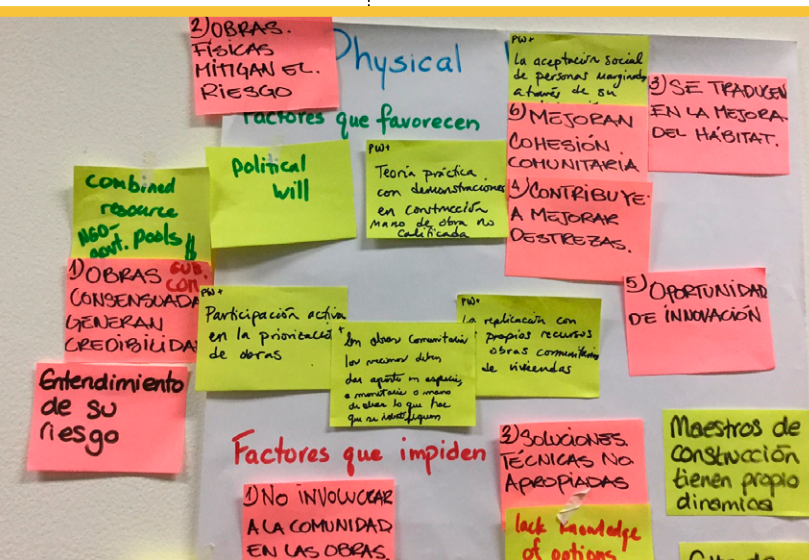 2) OBRAS.
FÍSICAS
MITIGAN EL.
RIESGO
Physical
Factores que favorecen
PW+
La aceptación social
de personas marginadas
a través de su
3) SE TRADUCEN
EN LA MEJORA
DEL HÁBITAT.
6) MEJORAN
COHESIÓN
COMUNITARIA
4) CONTRIBUYE
A MEJORAR
DESTREZAS.
Political
Will
PW+
Teoría práctica
con demonstraciones
en construcción
mano de obra no
calificada
combined
resource
NGO-
govt. pools
1) OBRAS
CONSENSUADA
GENERAN
CREDIBILIDA
Entendimiento
de su
riesgo
PW+
Participación activa
en la priorizació
de obras
En obras comunitari
los vecinos deben
dar aporte en especie,
o monetario o mano
de obra lo que hac
que se identifiquen
PW+
La replicación con
propios recursos
obras comunitarias
de viviendas
5) OPORTUNIDAD
DE INNOVACIÓN
Factores que impiden
1) NO INVOLUCRAR
A LA COMUNIDAD
EN LAS OBRAS.
3) SOLUCIONES
TÉCNICAS NO
APROPIADAS
lack knowledge
of options
Maestros de
construcción
tienen propio
dinamica